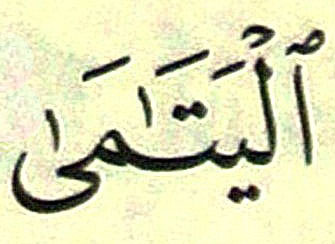 ٱلْيَتَـٰمَىٰ